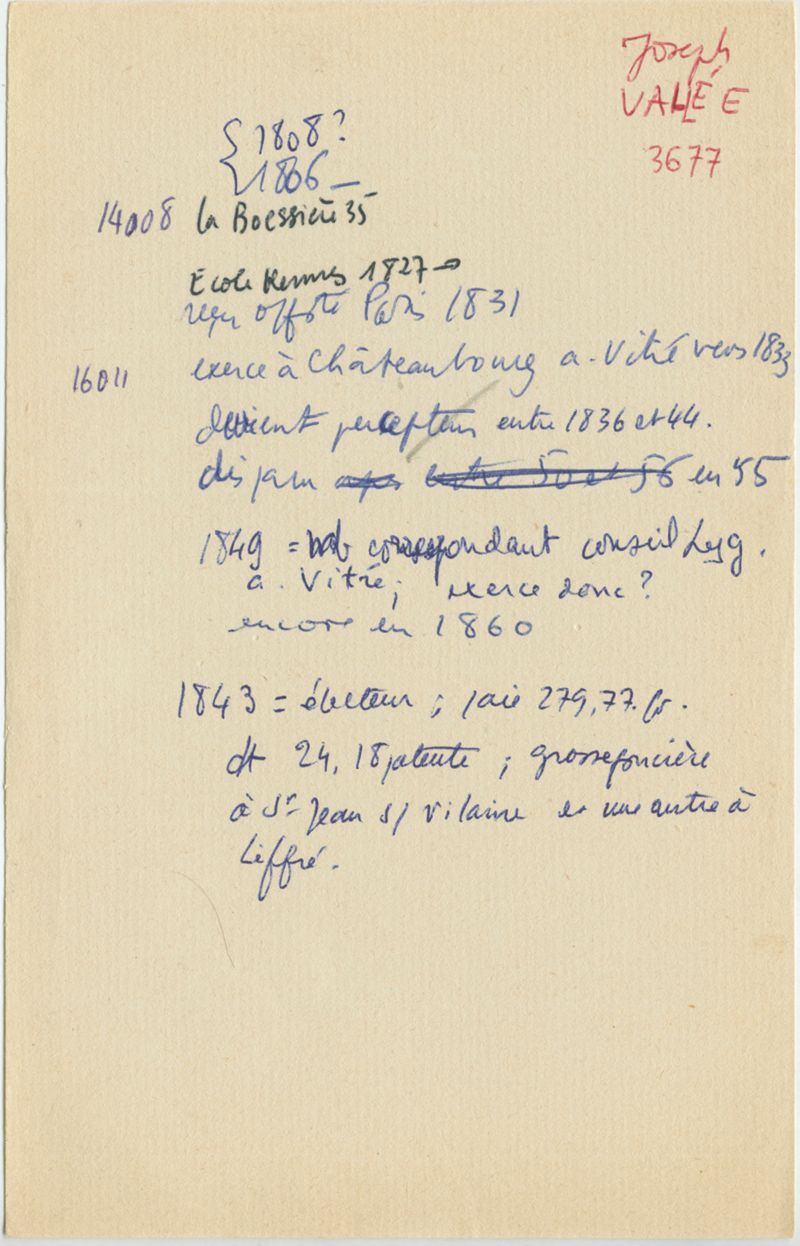 Joseph
VALLÉE
3677
{1808?
1806 —
14008 la Boessière 35
Ecole Rennes 1827 →
reçu offste Paris 1831
16011 exerce à Châteaubourg a. Vitré vers 1833
devient percepteur entre 1836 et 44.
disparu après entre 50 et 56 en 55
1849 = mb correspondant conseil hyg.
a. Vitré ; exerce donc ?
encore en 1860
1843 = électeur ; paie 279,77 fr.
dt 24,18 patente ; grosse foncière
à St Jean s/ Vilaine et une autre à
Liffré.